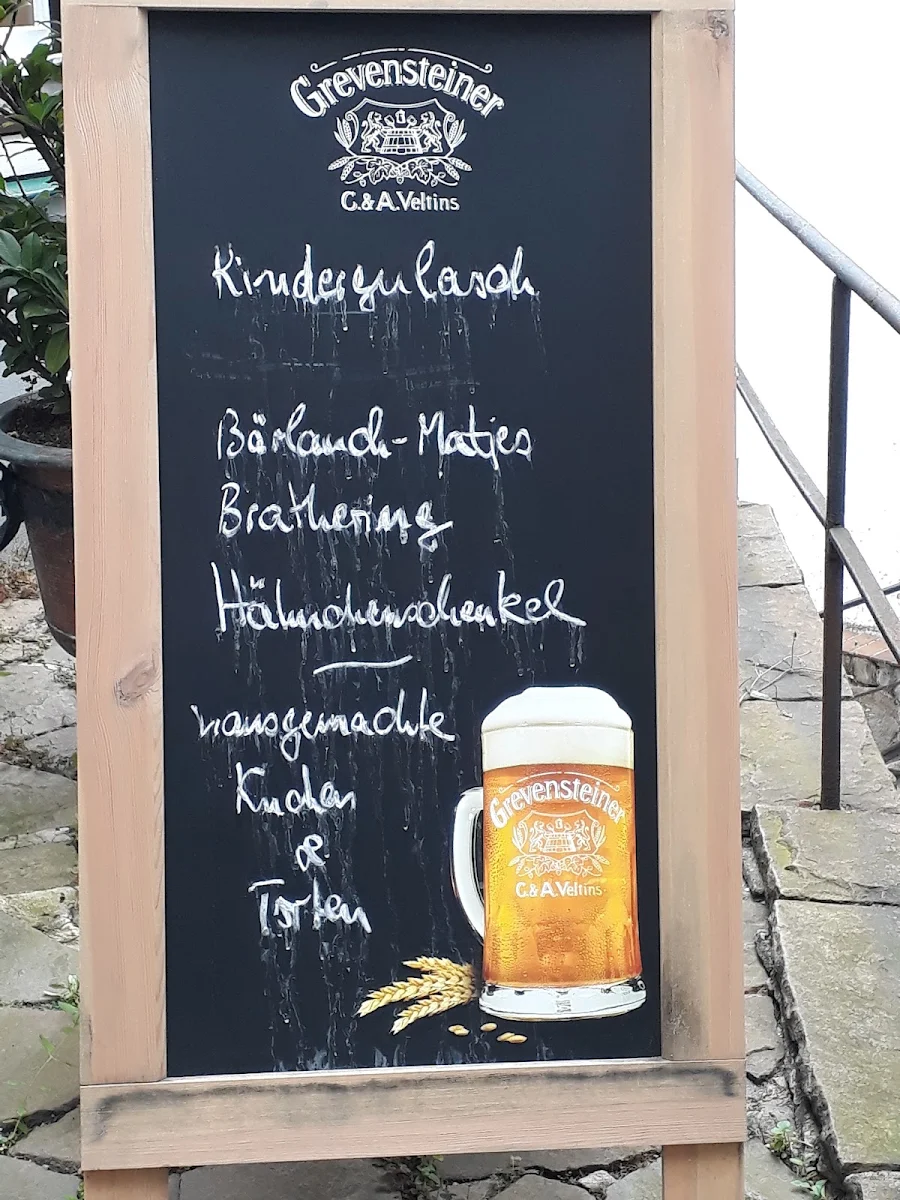 Grevensteiner
C.&A.Veltins
Kindergulasch
Bärlauch-Matjes
Brathering
Hähnchenschenkel
hausgemachte
Kuchen
&
Torten
Grevensteiner
C.&A.Veltins